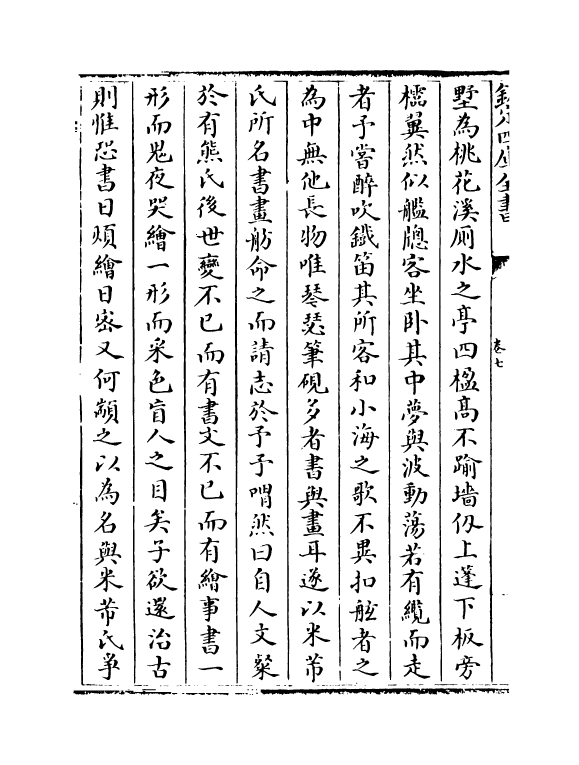 欽定四庫全書
卷七
墅為桃花溪厠水之亭四楹髙不踰墻仭上蓬下板旁
櫺翼然似艦牕客坐卧其中夢與波動蕩若有纜而走
者予嘗醉吹鐡笛其所客和小海之歌不異扣舷者之
為中無他長物唯琴瑟筆硯多者書與畫耳遂以米芾
氏所名書畫舫命之而請志於予予喟然曰自人文粲
於有熊氏後世變不已而有書文不已而有繪事書一
形而鬼夜哭繪一形而采色盲人之目矣子欲還治古
則惟恐書日煩繪日密又何顓之以為名與米芾氏爭